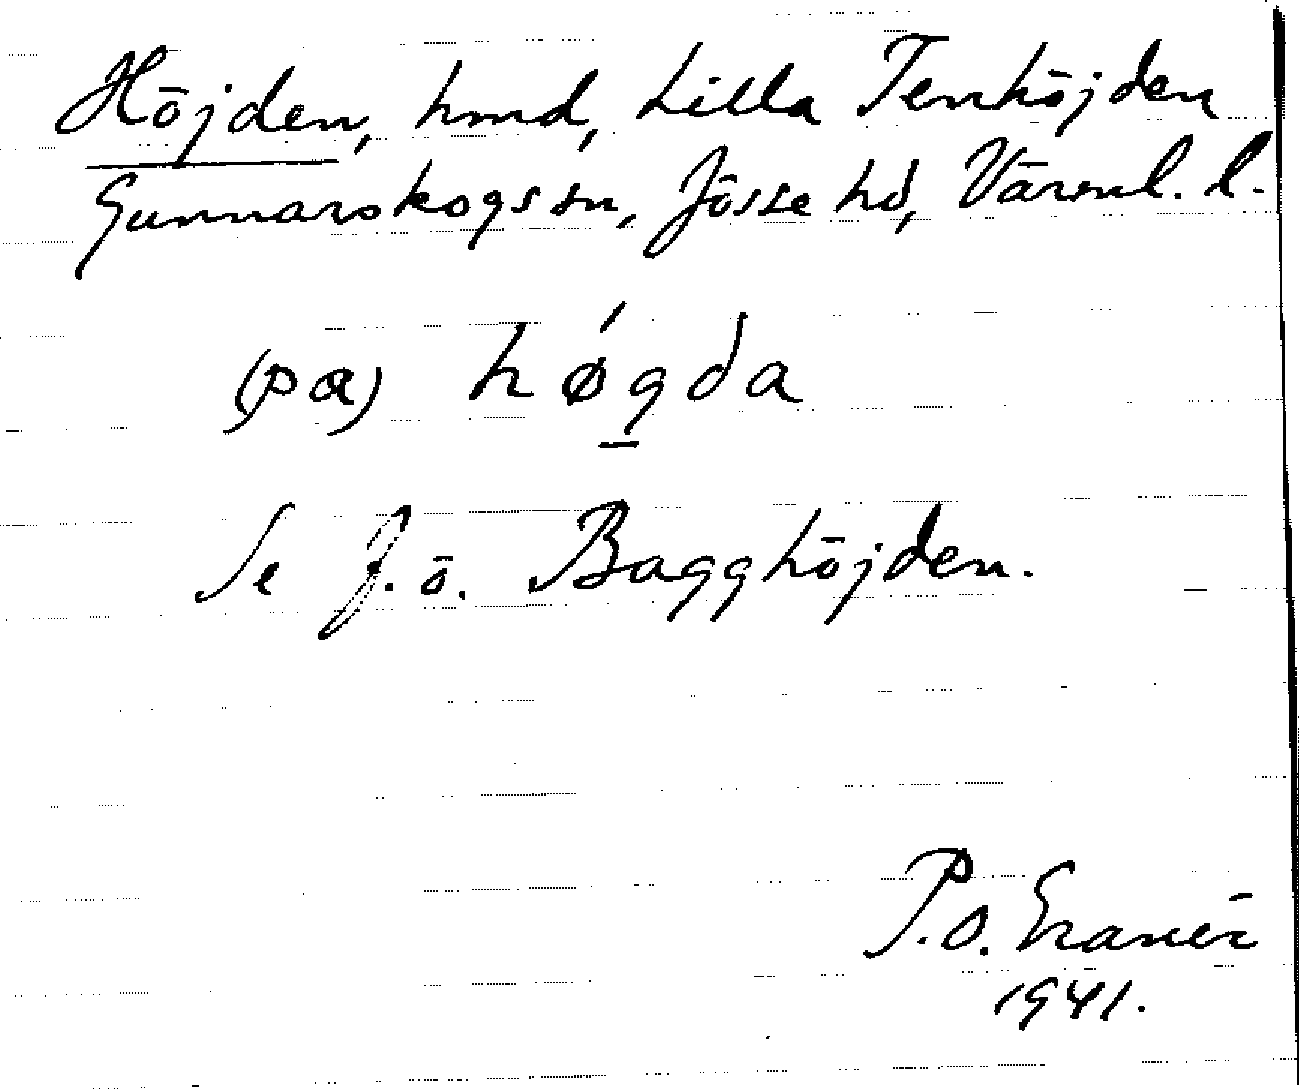 Höjden, hmd, Lilla Tenhöjden
Gunnarskogs sn, Jösse hd, Värml. l.
(pa) hǿgda
Se f.ö. Bagghöjden.
P.O.
1941.